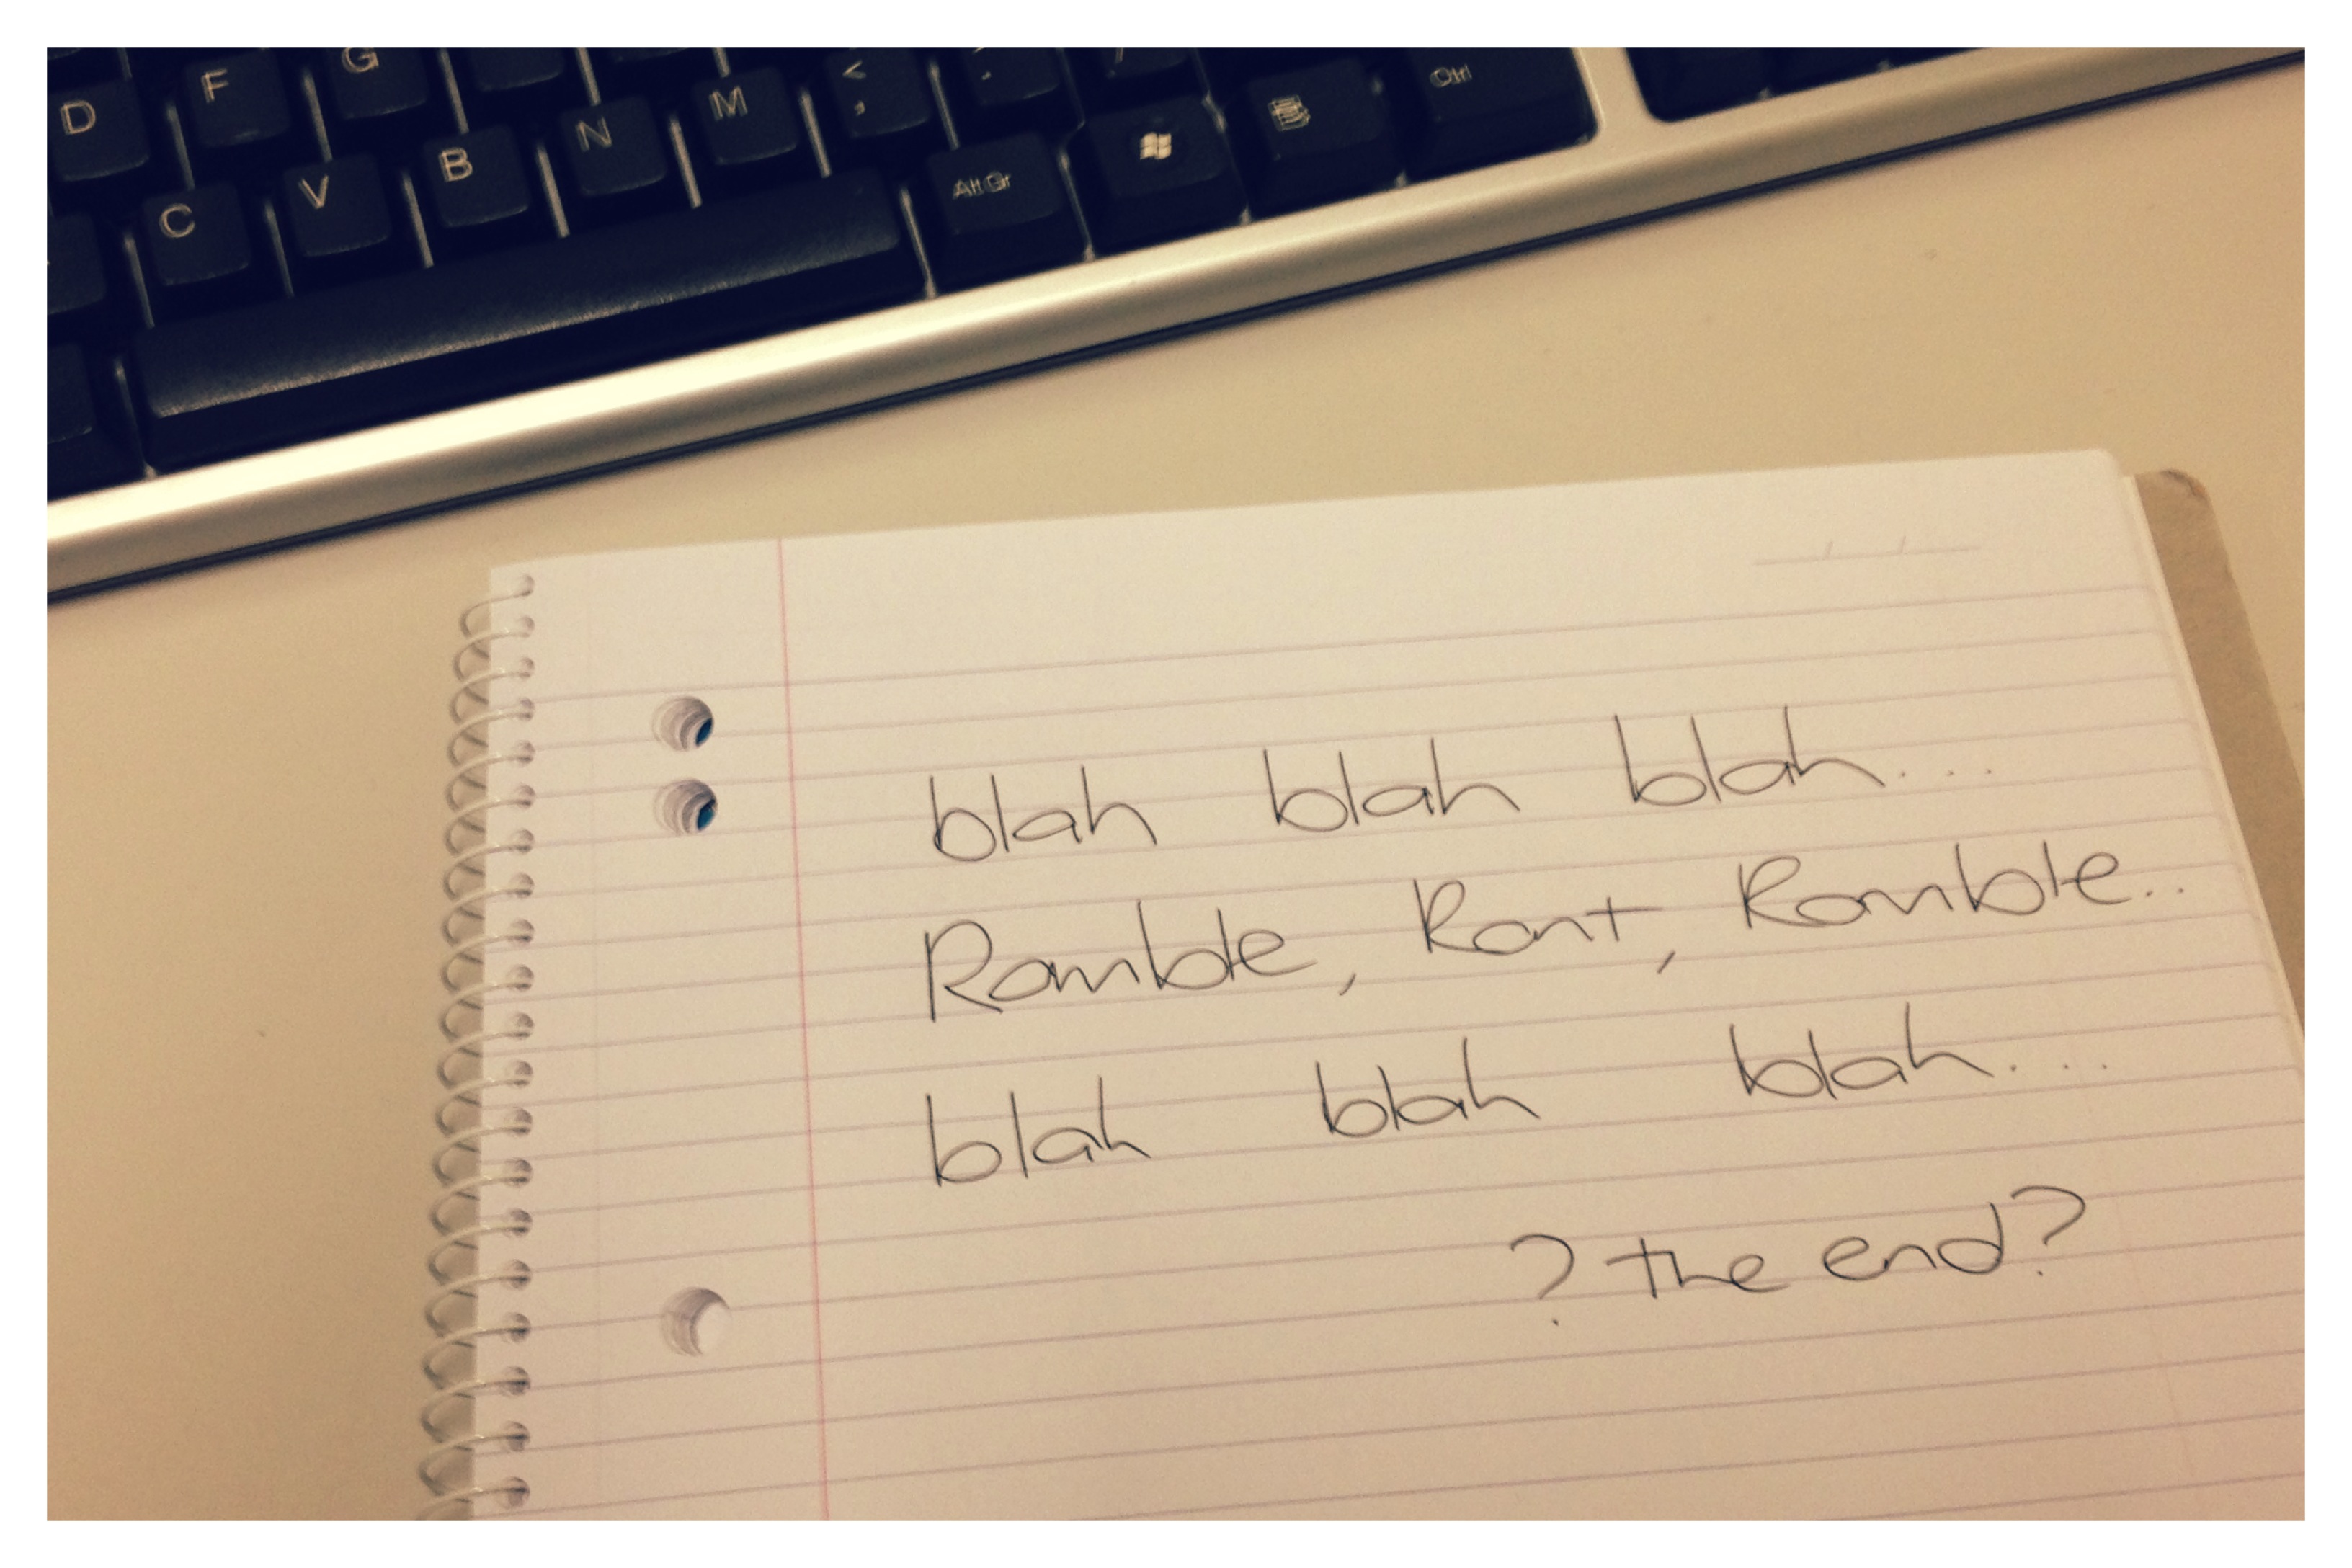 G
D F < , . /
C V B N M Alt Gr Ctrl
blah blah blah...
Ramble, Rant, Ramble..
blah blah blah....
? the end?